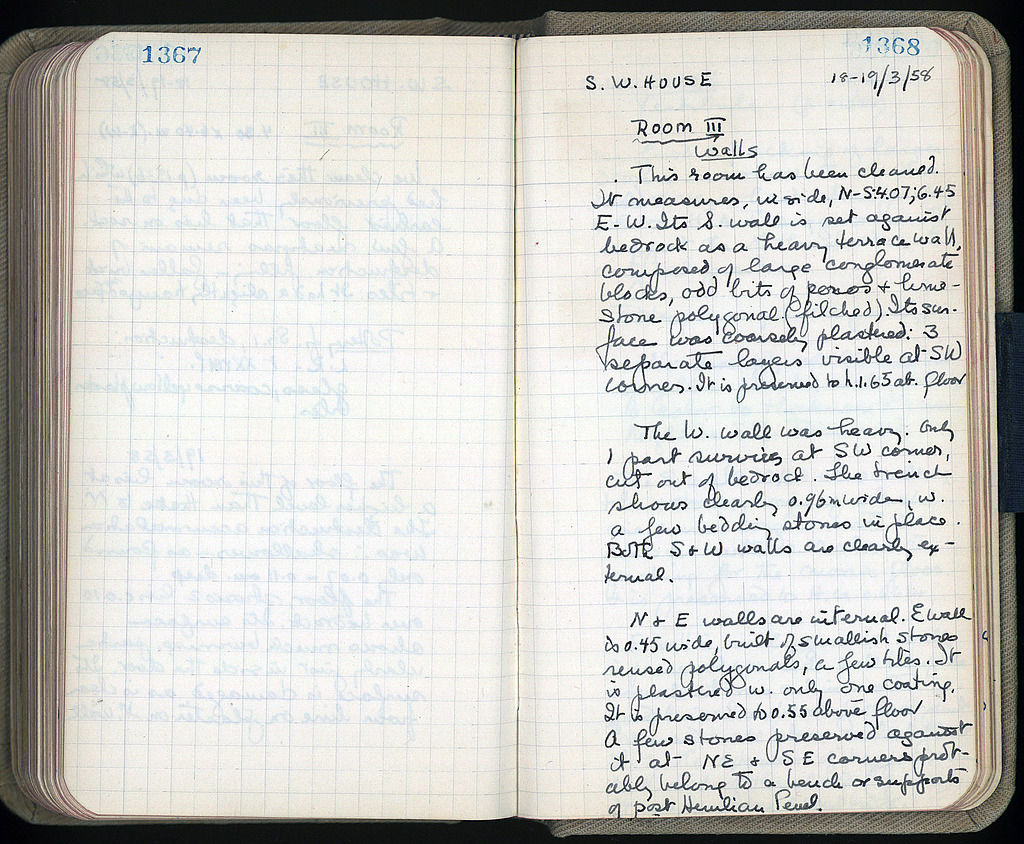 1367
1368
S. W. HOUSE 18-19/3/58
Room III
Walls
. This room has been cleaned.
It measures, inside, N-S 4.07; 6.45
E-W. Its S. wall is set against
bedrock as a heavy terrace wall,
composed of large conglomerate
blocks, odd bits of poros & lime-
stone polygonal (filched). Its sur-
face was coarsely plastered: 3
separate layers visible at SW
corner. It is preserved to h. 1.65 ab. floor
The W. wall was heavy. Only
1 part survives at SW corner,
cut out of bedrock. The trench
shows clearly 0.96m wide, w.
a few bedding stones in place.
Both S & W walls are clearly ex-
ternal.
N & E walls are internal. E wall
is 0.45 wide, built of smallish stones
reused polygonals, a few tiles. It
is plastered w. only one coating.
It is preserved to 0.55 above floor
A few stones preserved against
it at NE & SE corners prob-
ably belong to a bench or supports
of post Herulian